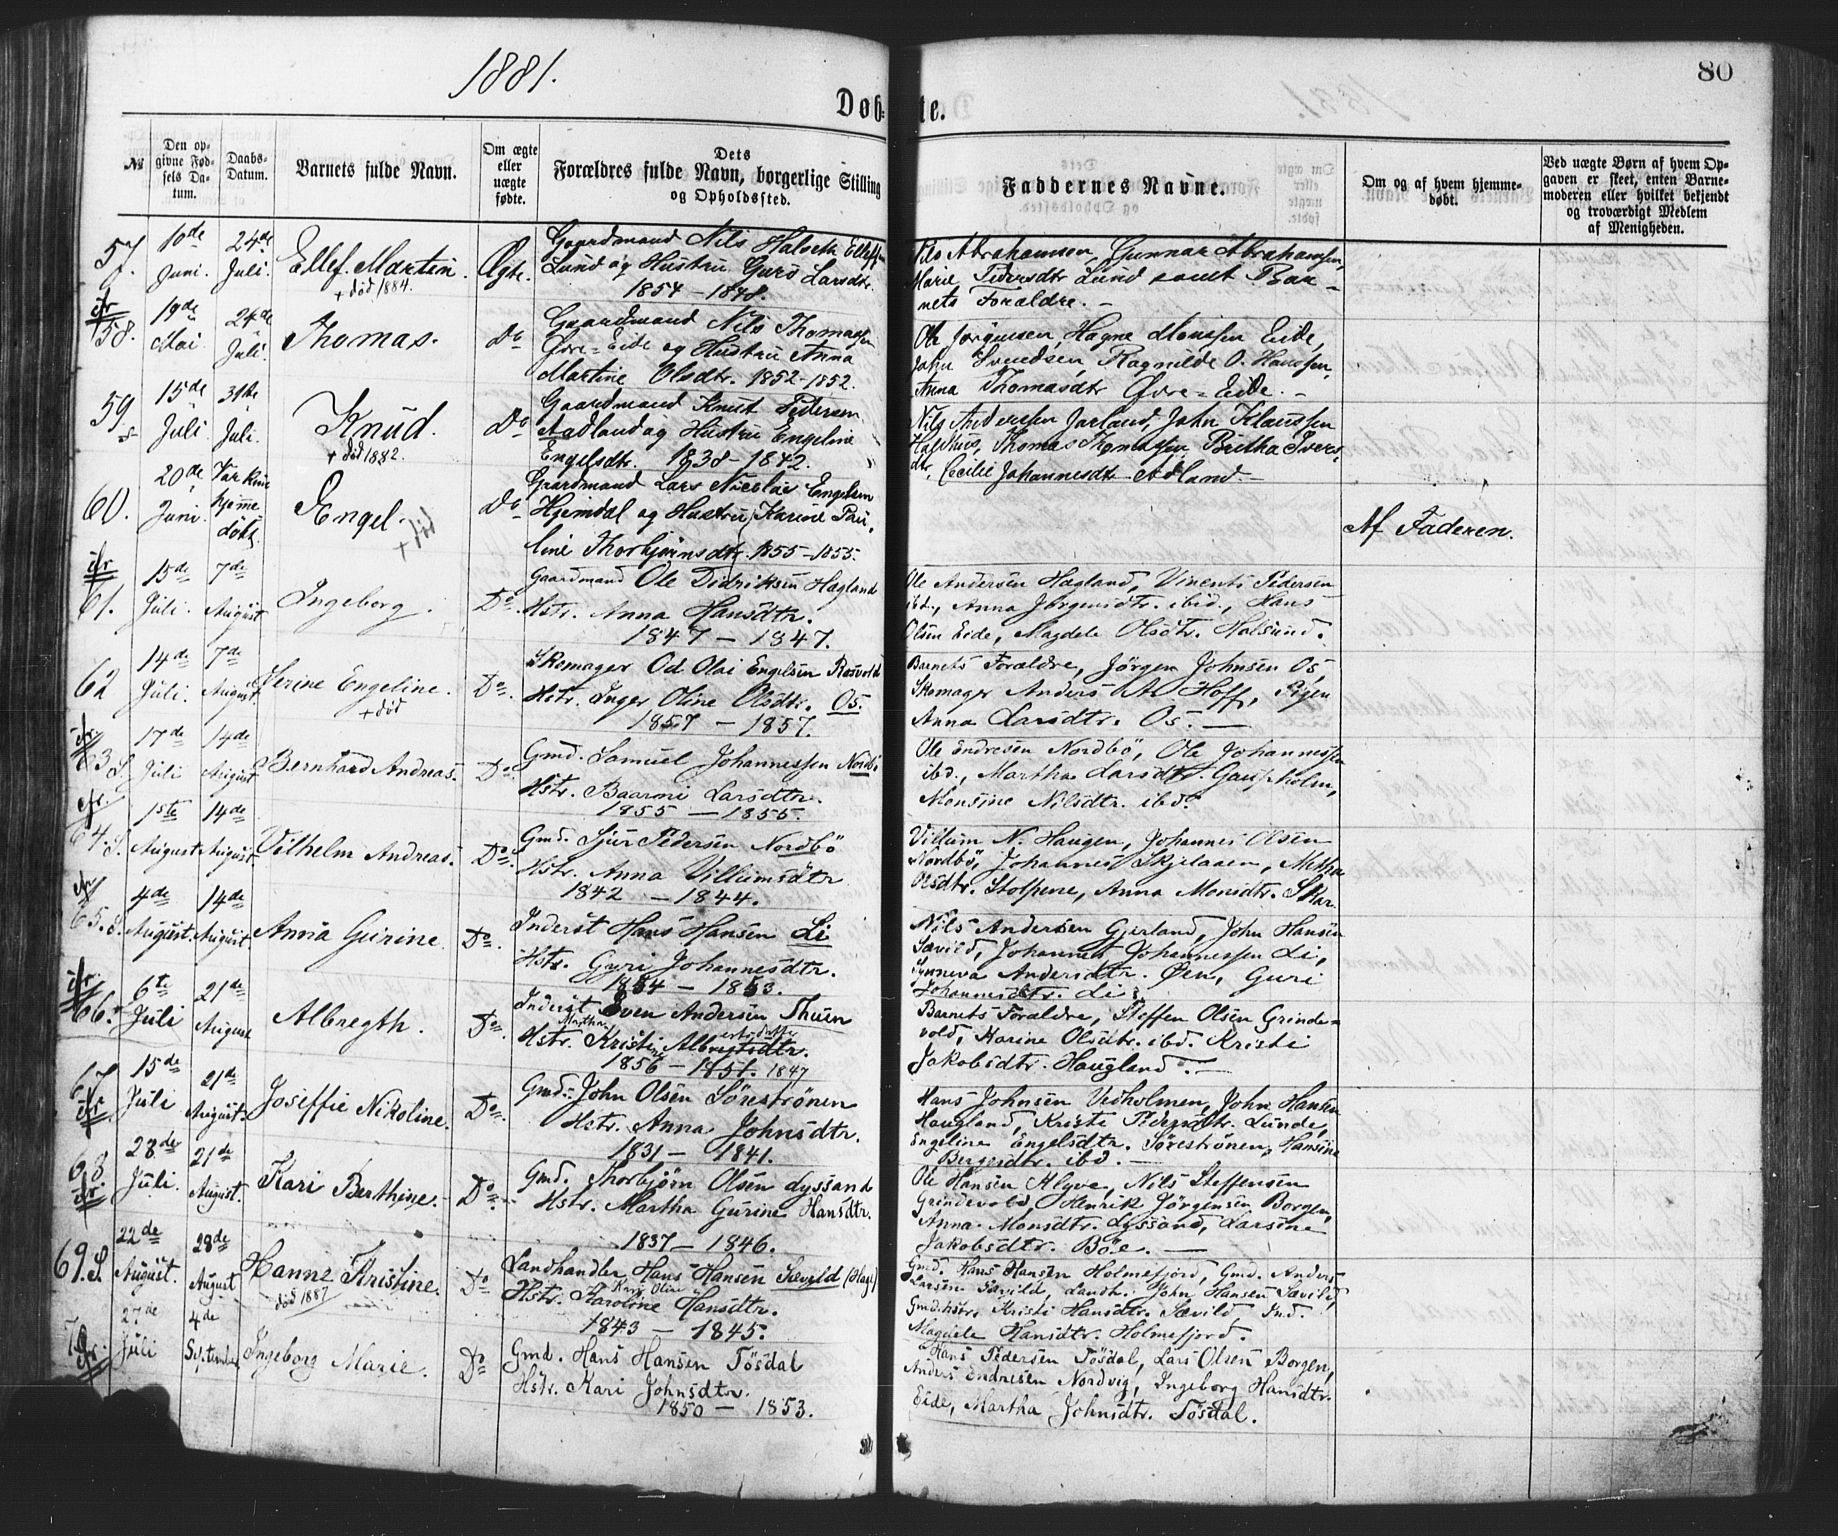 1881.
80
Døb- te.
№
Den op-
givne Fød-
sels Da-
tum.
Daabs-
Datum.
Barnets fulde Navn.
Om ægte
eller
uægte
fødte.
Dets
Forældres fulde Navn, borgerlige Stilling
og Opholdssted.
Faddernes Navne.
Om og af hvem hjemme-
døbt.
Ved uægte Børn af hvem Op-
gaven er skeet, enten Barne-
moderen eller hvilket bekjendt
og troværdigt Medlem
af Menigheden.
57
10de
Juni.
24de
Juli.
Ellef Martin.
+ død 1884.
Ægte.
Gaardmand Nils Halseth Ellefsen
Lund og Hustru Guro Larsdtr.
1854 – 1848.
Nils Abrahamsen, Gunnar Abrahamsen,
Marie Pedersdtr Lund samt Bar-
nets Forældre. –
58.
19de
Mai
24de
Juli.
Thomas.
Do
Gaardmand Nils Thomassen
Øvre-Eide og Hustru Anna
Martine Olsdtr. 1852-1852.
Ole Jørgensen, Hagne Monssen Eide,
John Svendsen, Ragnilde O. Hanssen,
Anna Thomasdtr Øvre-Eide. –
59.
15de
Juli.
31te
Juli.
Knud.
+ død 1882.
Do
Gaardmand Knut Pedersen
Aadland og Hustru Engeline
Engelsdtr. 1838 – 1842.
Nils Andersen Jarland, John Klaussen
Thomas Knudsen, Britha Ivers-
dtr, Cecilie Johannesdtr Adland. –
60.
20de
Juni.
Var kun
hjemme-
døbt.
Engel.
+ død
Do
Gaardmand Lars Nicolai Engelsen
Hjemdal og Hustru Karine Pau-
line Thorbjørnsdtr. 1855 – 1855.
Af Faderen.
61.
15de
Juli.
7de
August
Ingeborg.
Do.
Gaardmand Ole Didriksen Hagland
Hstr. Anna Hansdtr.
1847 – 1847.
Ole Andersen Hagland, Vincents Pedersen
ibd., Anna Jørgensdtr. ibid., Hans
Olsen Eide, Magdele Olsdtr. Holsund.
62
14de
Juli.
7de
August
Serine Engeline.
+ død
Do.
Skomager Od Olai Engelsen Røsvold
Hstr. Inger Oline Olsdtr. Os.
1857 – 1857.
Barnets Forældre, Jørgen Johnsen Os,
Skomager Anders A. Hoff, Pigen
Anna Larsdtr. Os. –
63 S.
17de
Juli
14de
August
Bernhard Andreas.
Do
Gmd. Samuel Johannessen Nordbø
Hstr. Baarni Larsdtr.
1855 – 1855.
Ole Endresen Nordbø, Ole Johannessen
ibd., Martha Larsdtr. Gaupholm,
Monsine Nilsdtr. ibd.
64. S.
1ste
August
14de
August.
Vilhelm Andreas.
Do.
Gmd. Sjur Pedersen Nordbø
Hstr. Anna Villumsdtr
1842 – 1844.
Villum N. Haugen, Johannes Olsen
Nordbø, Johannes Skjelaaen,
Olsdtr. Stolpene, Anna Monsdtr. Skar.
65. S.
4de
August.
14de
August
Anna Gurine.
Do.
Inderst Hans Hansen Li
Hstr. Guri Johannesdtr.
1854 – 1853.
Nils Andersen Gjerland, John Hansen
Sævild, Johannes Johannessen Li,
Synneva Andersdtr. Øen, Guri
Johannesdtr. Li.
66.
6te
Juli
21de
August
Albregth.
Do.
Inderst Sven Andersen Thuen
Martha
Hstr. Kristine Albregtsdtr.
1856 – 1851. 1847
Barnets Forældre, Steffen Olsen Grinde-
vold, Karine Olsdtr. ibd. Kristi
Jakobsdtr. Haugland. –
67
15de
Juli
21de
August.
Joseffie Nikoline.
Do.
Gmd. John Olsen Sørestrønen
Hstr. Anna Johnsdtr.
1831 – 1841.
Hans Johnsen Vedholmen, John Hansen
Haugland, Kriste Pedersdtr. Lunde,
Engeline Engelsdtr. Sørestrønen, Hansine
Bergesdtr. ibd. –
68.
28de
Juli.
21de
August.
Kari Berthine.
Do.
Gmd. Thorbjørn Olsen Lyssand
Hstr. Martha Gurine Hansdtr.
1837 – 1846.
Ole Hansen Alyve, Nils Steffensen
Grindevold, Henrik Jørgensen Borgen,
Anna Monsdtr. Lyssand, Larsine
Jakobsdtr. Bøe. –
69. S.
22de
August.
28de
August
Hanne Kristine.
død 1887
Do
Landhandler Hans Hansen Sævild (Hage)
Kari Oline
Hstr. Karoline Hansdtr.
1843 – 1845.
Gmd. Hans Hansen Holmefjord, Gmd. Anders
Larsen Sævild, Landh. John Hansen Sævild,
Gmdshstr. Kristi Hansdtr. Sævild Ind.
Magdele Hansdtr. Holmefjord.
27de
Juli
4de
September
Ingeborg Marie.
Do
Gmd. Hans Hansen Tøsdal
Hstr. Kari Johnsdtr.
1850 – 1853.
Hans Pedersen Tøsdal, Lars Olsen Borgen,
Anders Endresen Nordvig, Ingeborg Hansdtr.
Eide, Martha Johnsdtr. Tøsdal.